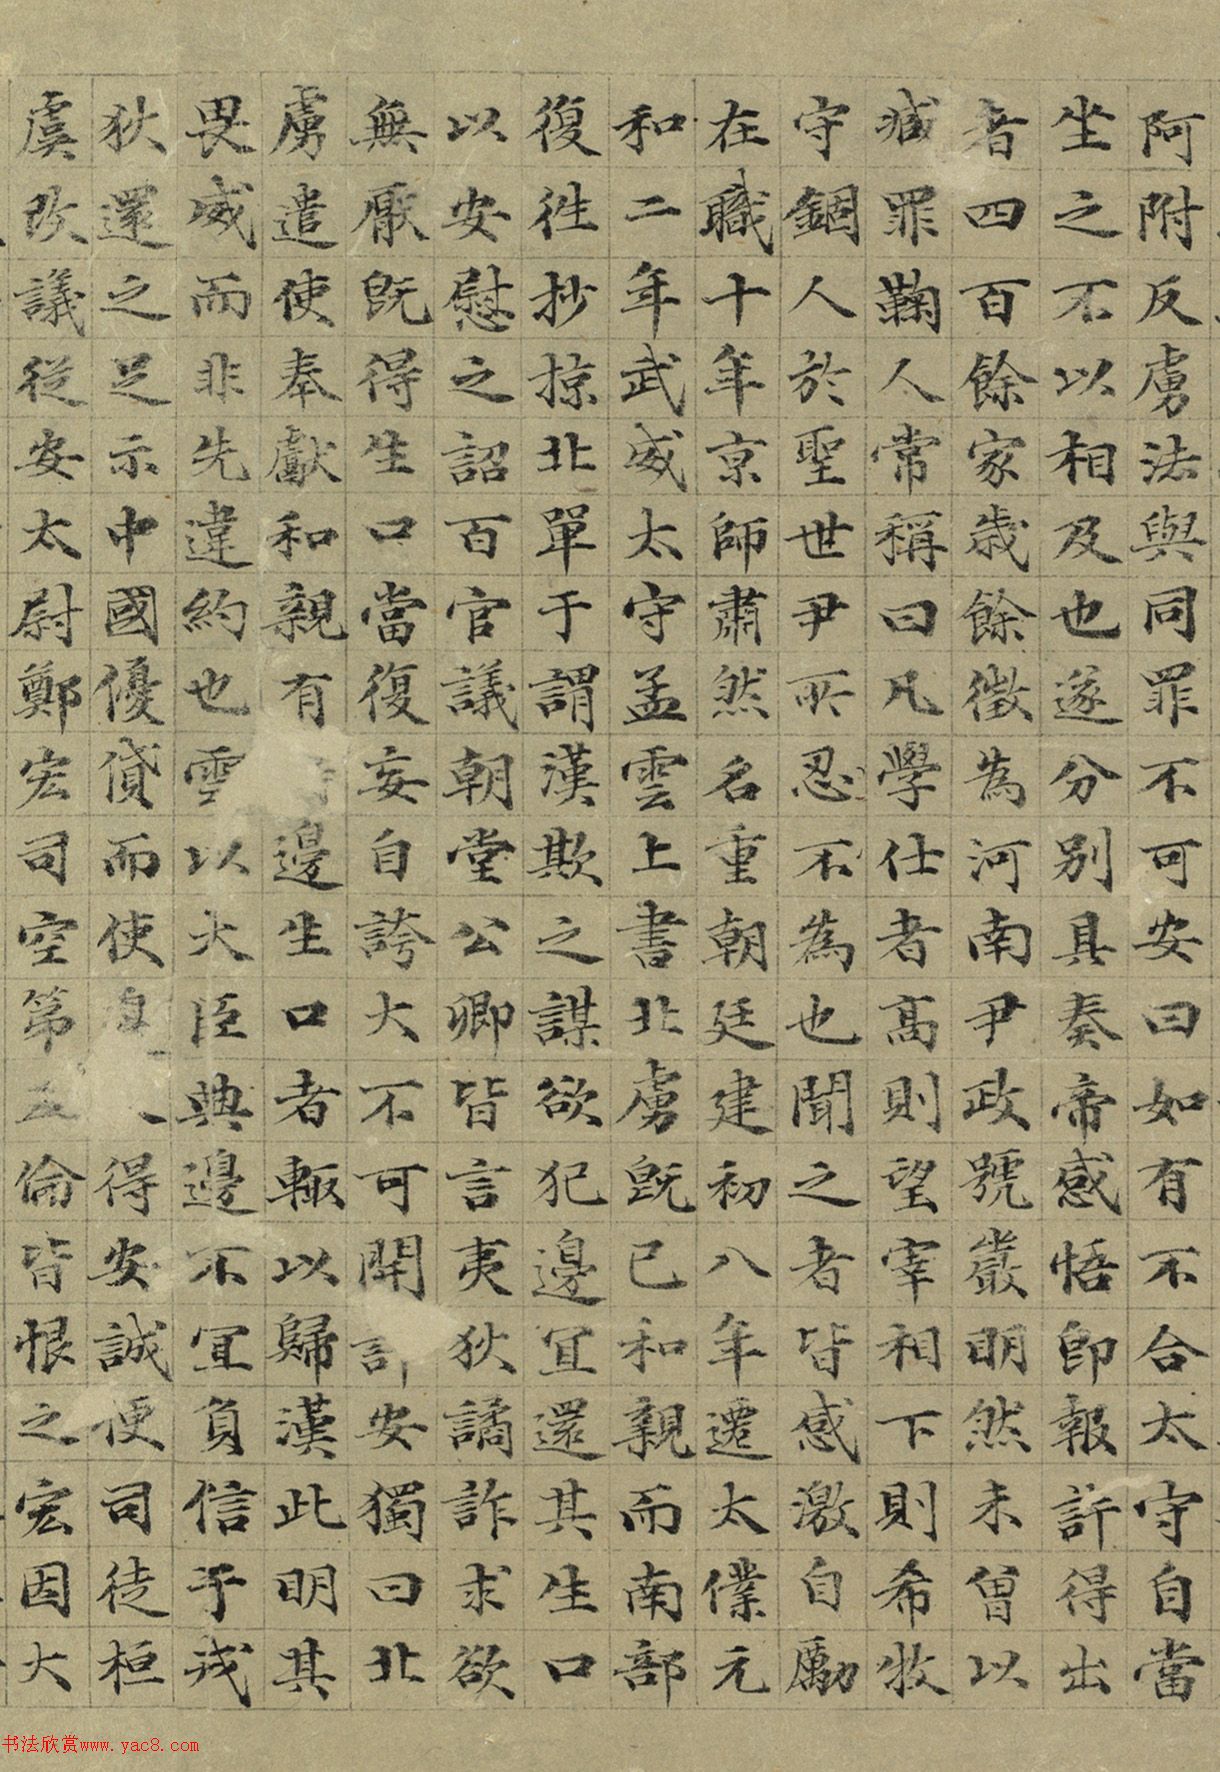 阿附反虜法與同罪不可安曰如有不合太守自當
坐之不以相及也遂分別具奏帝感悟即報許得出
者四百餘家歲餘徵為河南尹政號嚴明然未曾以
臧罪鞠人常稱曰凡學仕者高則望宰相下則希牧
守錮人於聖世尹所忍不為也聞之者皆感激自勵
在職十年京師肅然名重朝廷建初八年遷太僕元
和二年武威太守孟雲上書北虜既已和親而南部
復往抄掠北單于謂漢欺之謀欲犯邊宜還其生口
以安慰之詔百官議朝堂公卿皆言夷狄譎詐求欲
無厭既得生口當復妄自誇大不可開許安獨曰北
虜遣使奉獻和親有邊生口者輒以歸漢此明其
畏威而非先違約也雲以大臣典邊不宜負信于戎
狄還之足示中國優貸而使得安誠便司徒桓
虞改議從安太尉鄭宏司空第五倫皆恨之宏因大
书法欣赏www.yac8.com